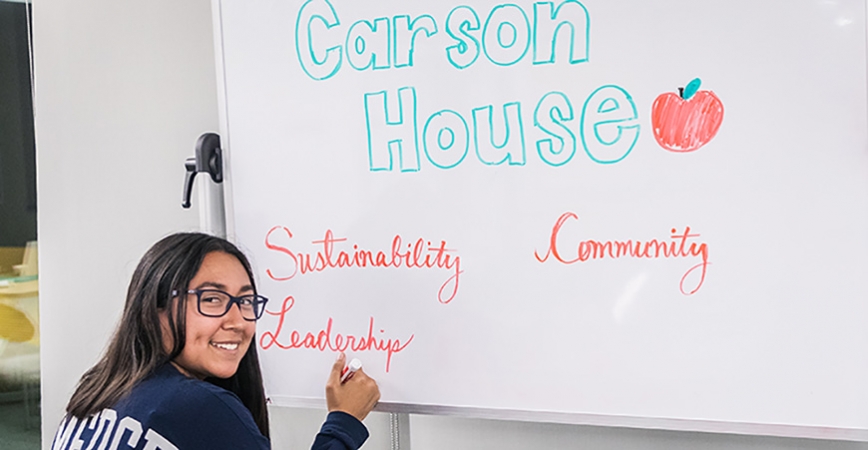 Carson
House
Sustainability
Community
Leadership
MERCED